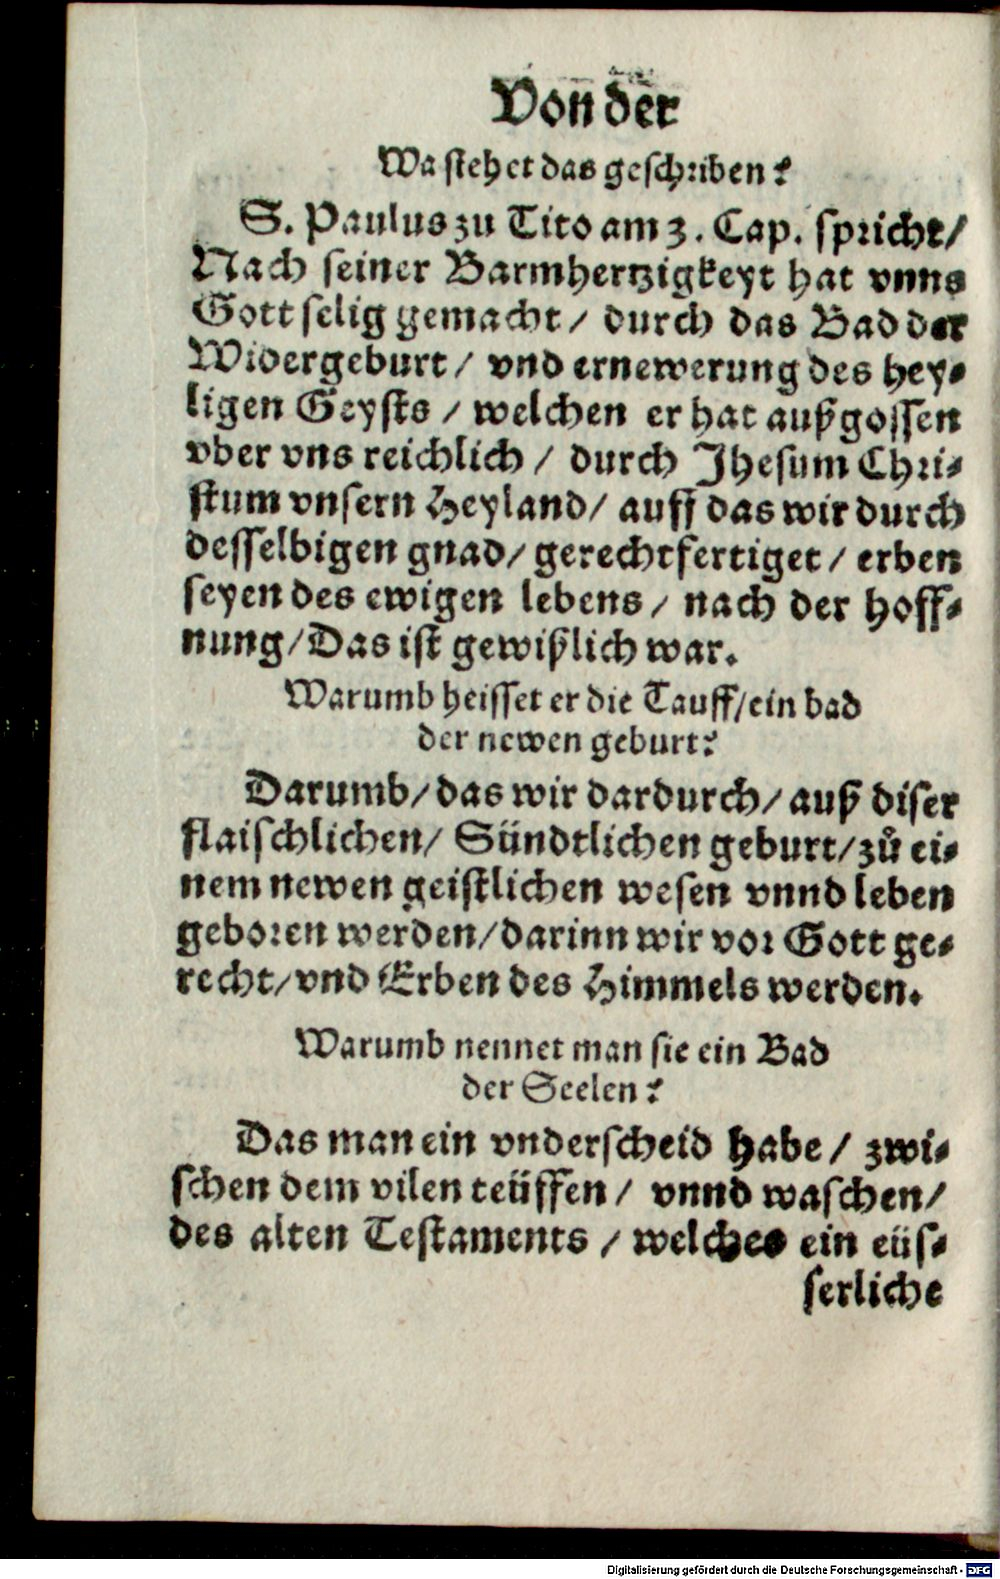 Von der
Wa stehet das geschriben?
S. Paulus zu Tito am 3. Cap. spricht/
Nach seiner Barmhertzigkeyt hat vnns
Gott selig gemacht/ durch das Bad der
Widergeburt/ vnd ernewerung des hey-
ligen Geysts/ welchen er hat außgossen
vber vns reichlich/ durch Jhesum Chri-
stum vnsern Heyland/ auff das wir durch
desselbigen gnad/ gerechtfertiget/ erben
seyen des ewigen lebens/ nach der hoff-
nung/ Das ist gewißlich war.
Warumb heisset er die Tauff/ ein bad
der newen geburt?
Darumb/ das wir dardurch/ auß diser
flaischlichen/ Sündtlichen geburt/ zů ei-
nem newen geistlichen wesen vnnd leben
geboren werden/ darinn wir vor Gott ge-
recht/ vnd Erben des Himmels werden.
Warumb nennet man sie ein Bad
der Seelen?
Das man ein vnderscheid habe/ zwi-
schen dem vilen teüffen/ vnnd waschen/
des alten Testaments/ welches ein eüs-
serliche
Digitalisierung gefördert durch die Deutsche Forschungsgemeinschaft - DFG